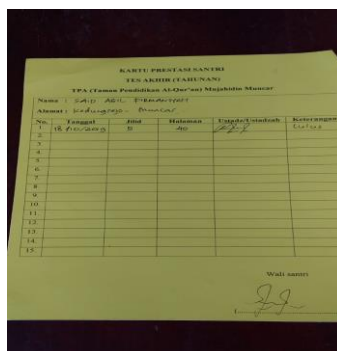 KARTU PRESTASI SANTRI
TES AKHIR (TAHUNAN)
TPA (Taman Pendidikan Al-Qur'an) Mujahidin Muncar
Nama : SAID ABIL
Alamat : Kedungrejo - Muncar
No. Tanggal Jilid Halaman Ustadz/Ustadzah Keterangan
1. 40 Lulus
2.
3.
4.
5.
6.
7.
8.
9.
10.
11.
12.
13.
14.
15.
Wali santri